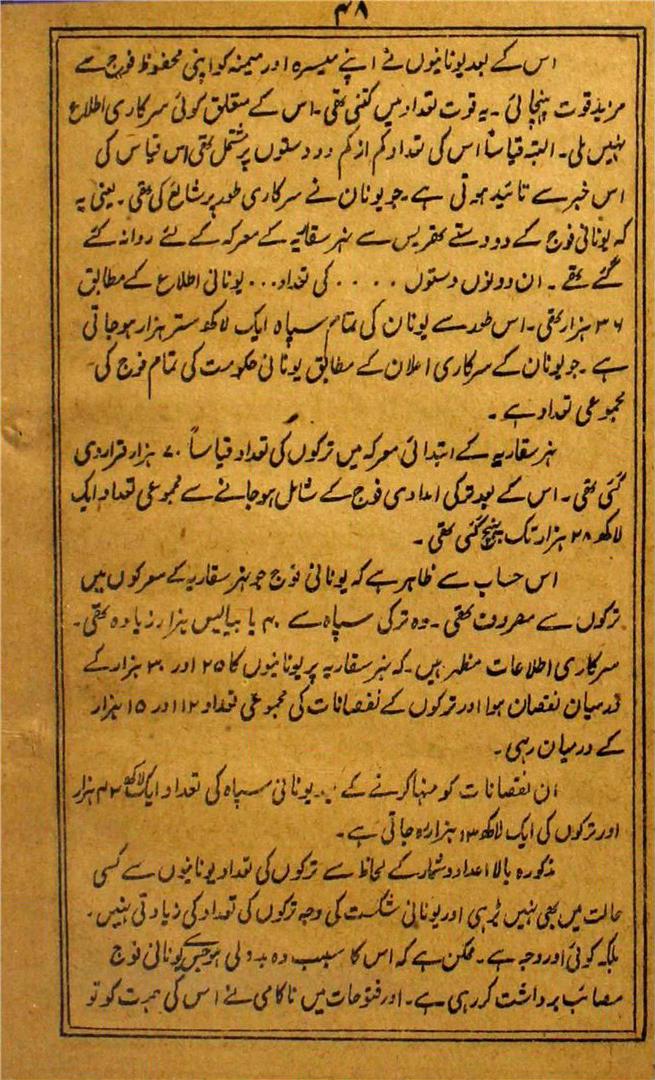 ۴۸
اس کے بعد یونانیوں نے اپنے میسرہ اور میمنہ کو اپنی محفوظ فوج سے
مزید قوت پہنچائی۔ یہ قوت تعداد میں کتنی تھی۔ اس کے متعلق کوئی سرکاری اطلاع
نہیں ملی۔ البتہ قیاساً اس کی تعداد کم از کم دو دستوں پر مشتمل تھی اس قیاس کی
اس خبر سے تائید ہوتی ہے۔ جو یونان نے سرکاری طور پر شائع کی تھی۔ یعنی یہ
کہ یونانی فوج کے دو دستے تھریس سے نہر سقاریہ کے معرکہ کے لئے روانہ کئے
گئے تھے۔ ان دونوں دستوں ۔۔۔۔ کی تعداد ۔۔۔ یونانی اطلاع کے مطابق
۳۶ ہزار تھی۔ اس طور سے یونان کی تمام سپاہ ایک لاکھ ستر ہزار ہو جاتی
ہے۔ جو یونان کے سرکاری اعلان کے مطابق یونانی حکومت کی تمام فوج کی
مجموعی تعداد ہے۔
نہر سقاریہ کے ابتدائی معرکہ میں ترکوں کی تعداد قیاساً ۷۰ ہزار قرار دی
گئی تھی۔ اس کے بعد ترکی امدادی فوج کے شامل ہو جانے سے مجموعی تعداد ایک
لاکھ ۲۸ ہزار تک پہنچ گئی تھی۔
اس حساب سے ظاہر ہے کہ یونانی فوج جو نہر سقاریہ کے معرکوں میں
ترکوں سے مصروف تھی۔ وہ ترکی سپاہ سے ۴۰ یا بیالیس ہزار زیادہ تھی۔
سرکاری اطلاعات مظہر ہیں۔ کہ نہر سقاریہ پر یونانیوں کا ۲۵ اور ۳۰ ہزار کے
درمیان نقصان ہوا اور ترکوں کے نقصانات کی مجموعی تعداد ۱۲ اور ۱۵ ہزار
کے درمیان رہی۔
ان نقصانات کو منہا کرنے کے بعد یونانی سپاہ کی تعداد ایک لاکھ ۴۲ ہزار
اور ترکوں کی ایک لاکھ ۱۳ ہزار رہ جاتی ہے۔
مذکورہ بالا اعداد و شمار کے لحاظ سے ترکوں کی تعداد یونانیوں سے کسی
حالت میں بھی نہیں بڑھی اور یونانی شکست کی وجہ ترکوں کی تعداد کی زیادتی نہیں۔
بلکہ کوئی اور وجہ ہے۔ ممکن ہے کہ اس کا سبب وہ بددلی ہو جسے یونانی فوج
مصائب برداشت کر رہی ہے۔ اور فتوحات میں ناکامی نے اس کی ہمت کو تو